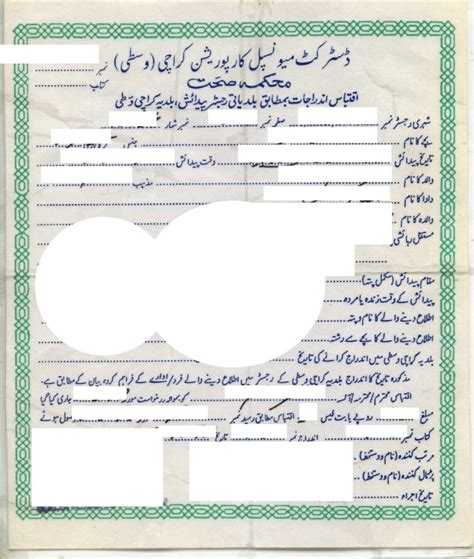 ڈسٹرکٹ میونسپل کارپوریشن کراچی (وسطی)
نمبر
محکمہ صحت
کتاب
اقتباس اندراجات بمطابق بلدیاتی رجسٹر پیدائش، بلدیہ کراچی وسطی
شہری رجسٹر نمبر صفحہ نمبر نمبر شمار
بچے کا نام جنس
تاریخ پیدائش وقت پیدائش
والد کا نام مذہب
دادا کا نام
والدہ کا نام
مستقل رہائشی
مقام پیدائش (مکمل پتہ)
پیدائش کے وقت زندہ یا مردہ
اطلاع دینے والے کا نام و پتہ
اطلاع دینے والے کا بچے سے رشتہ
بلدیہ کراچی وسطی میں اندراج کرانے کی تاریخ
مذکورہ تاریخ کا اندراج بلدیہ کراچی وسطی کے رجسٹر میں اطلاع دینے والے فرد/ادارے کے فراہم کردہ بیان کے مطابق ہے.
اقتباس محترم/محترمہ کو بحوالہ درخواست مورخہ جاری کیا گیا
مبلغ روپے بابت فیس اقتباس مطابق رسید نمبر وصول ہوئے
کتاب نمبر اندراج نمبر تاریخ
مرتب کنندہ (نام و دستخط)
پڑتال کنندہ (نام و دستخط)
تاریخ اجراء